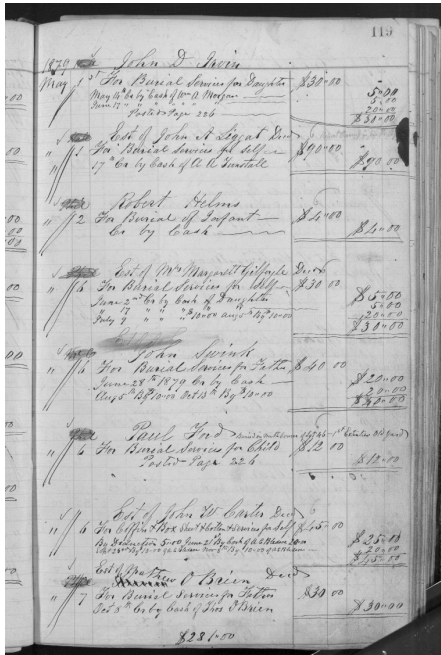 119
1870 John D. Irvin
May 1st For Burial Services for Daughter $30.00
May 14th Cr by Cash of Wm A. Morgan 5.00
June 17 " " " " " 5.00
20.00
Posted Page 226 $30.00
Est of John A. Liggat Decd
" 1 For Burial Services for Self $90.00
17th Cr by Cash of A A Tunstall $90.00
Robert Helms
" 2 For Burial of Infant $4.00
Cr by Cash $4.00
Est of Mrs Margarett Decd
" 6 For Burial Services for Self $30.00
June 2nd Cr by Cash of Daughter $5.00
" 17 " " " 5.00
July 9 " " " $10.00 Aug 5th By $10.00 20.00
$30.00
John Swink
" 6 For Burial Services for Father $40.00
June 28th 1870 Cr by Cash $20.00
Aug 5th By $10.00 Oct 13th By $10.00 20.00
$40.00
Paul Ford
" 6 For Burial Services for Child $12.00
Posted Page 226 $12.00
Est of John W. Carter Decd
" 6 For Coffin & Box & Services for Self $45.00
By 5.00 June 21st By Cash of 20.00 $25.00
20.00
$45.00
Est of O'Brien Decd
" 7 For Burial Services for Father $30.00
Oct 8th Cr by Cash of Thos O'Brien $30.00
$281.00